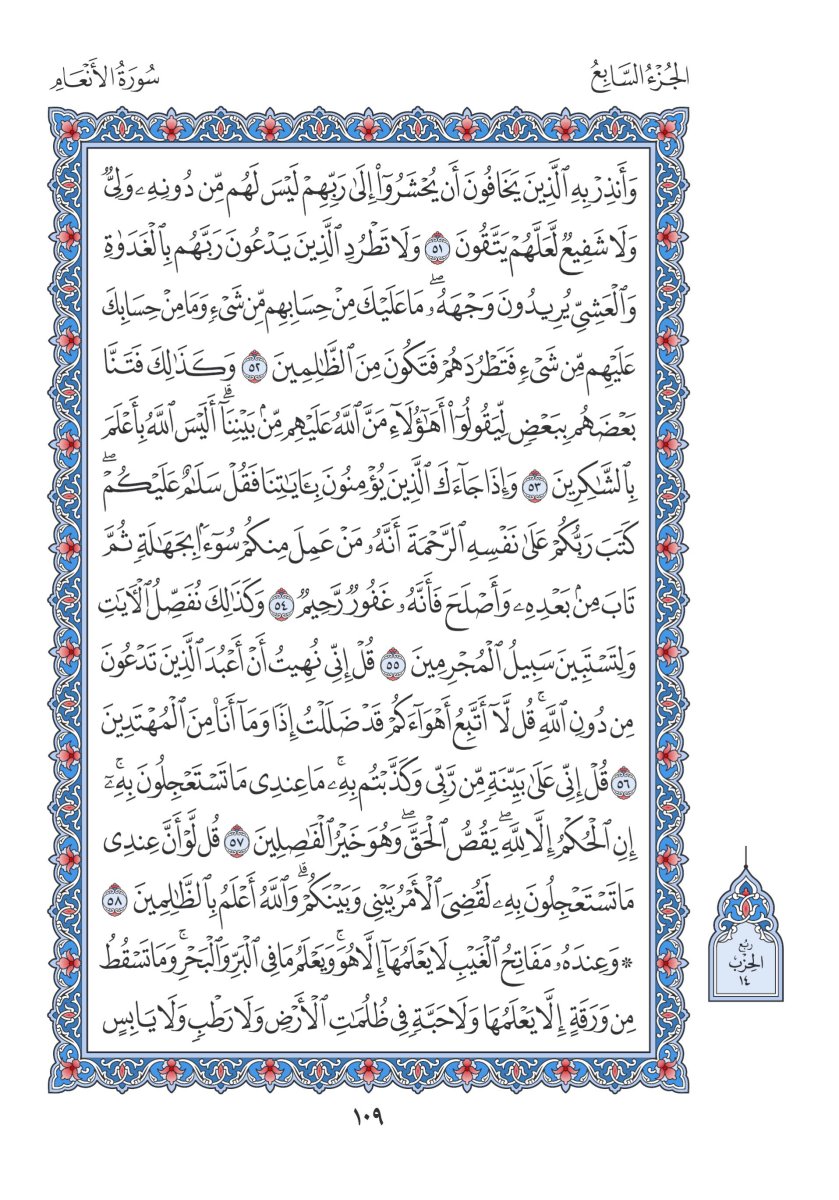 الجُزْءُ السَّابِعُ
سُورَةُ الأَنْعَامِ
وَأَنذِرْ بِهِ ٱلَّذِينَ يَخَافُونَ أَن يُحْشَرُوٓاْ إِلَىٰ رَبِّهِمْ لَيْسَ لَهُم مِّن دُونِهِۦ وَلِيٌّ
وَلَا شَفِيعٌ لَّعَلَّهُمْ يَتَّقُونَ ٥١ وَلَا تَطْرُدِ ٱلَّذِينَ يَدْعُونَ رَبَّهُم بِٱلْغَدَوٰةِ
وَٱلْعَشِيِّ يُرِيدُونَ وَجْهَهُۥۖ مَا عَلَيْكَ مِنْ حِسَابِهِم مِّن شَىْءٍ وَمَا مِنْ حِسَابِكَ
عَلَيْهِم مِّن شَىْءٍ فَتَطْرُدَهُمْ فَتَكُونَ مِنَ ٱلظَّٰلِمِينَ ٥٢ وَكَذَٰلِكَ فَتَنَّا
بَعْضَهُم بِبَعْضٍ لِّيَقُولُوٓاْ أَهَٰٓؤُلَآءِ مَنَّ ٱللَّهُ عَلَيْهِم مِّنۢ بَيْنِنَآۗ أَلَيْسَ ٱللَّهُ بِأَعْلَمَ
بِٱلشَّٰكِرِينَ ٥٣ وَإِذَا جَآءَكَ ٱلَّذِينَ يُؤْمِنُونَ بِـَٔايَٰتِنَا فَقُلْ سَلَٰمٌ عَلَيْكُمْۖ
كَتَبَ رَبُّكُمْ عَلَىٰ نَفْسِهِ ٱلرَّحْمَةَ أَنَّهُۥ مَنْ عَمِلَ مِنكُمْ سُوٓءَۢا بِجَهَٰلَةٍ ثُمَّ
تَابَ مِنۢ بَعْدِهِۦ وَأَصْلَحَ فَأَنَّهُۥ غَفُورٌ رَّحِيمٌ ٥٤ وَكَذَٰلِكَ نُفَصِّلُ ٱلْأٓيَٰتِ
وَلِتَسْتَبِينَ سَبِيلُ ٱلْمُجْرِمِينَ ٥٥ قُلْ إِنِّي نُهِيتُ أَنْ أَعْبُدَ ٱلَّذِينَ تَدْعُونَ
مِن دُونِ ٱللَّهِۚ قُل لَّآ أَتَّبِعُ أَهْوَآءَكُمْ قَدْ ضَلَلْتُ إِذًا وَمَآ أَنَا۠ مِنَ ٱلْمُهْتَدِينَ
٥٦ قُلْ إِنِّي عَلَىٰ بَيِّنَةٍ مِّن رَّبِّي وَكَذَّبْتُم بِهِۦۚ مَا عِندِي مَا تَسْتَعْجِلُونَ بِهِۦٓۚ
إِنِ ٱلْحُكْمُ إِلَّا لِلَّهِۖ يَقُصُّ ٱلْحَقَّۖ وَهُوَ خَيْرُ ٱلْفَٰصِلِينَ ٥٧ قُل لَّوْ أَنَّ عِندِي
مَا تَسْتَعْجِلُونَ بِهِۦ لَقُضِيَ ٱلْأَمْرُ بَيْنِي وَبَيْنَكُمْۗ وَٱللَّهُ أَعْلَمُ بِٱلظَّٰلِمِينَ ٥٨
* وَعِندَهُۥ مَفَاتِحُ ٱلْغَيْبِ لَا يَعْلَمُهَآ إِلَّا هُوَۚ وَيَعْلَمُ مَا فِي ٱلْبَرِّ وَٱلْبَحْرِۚ وَمَا تَسْقُطُ
مِن وَرَقَةٍ إِلَّا يَعْلَمُهَا وَلَا حَبَّةٍ فِي ظُلُمَٰتِ ٱلْأَرْضِ وَلَا رَطْبٍ وَلَا يَابِسٍ
رُبُع
الحِزْب
١٤
١٠٩